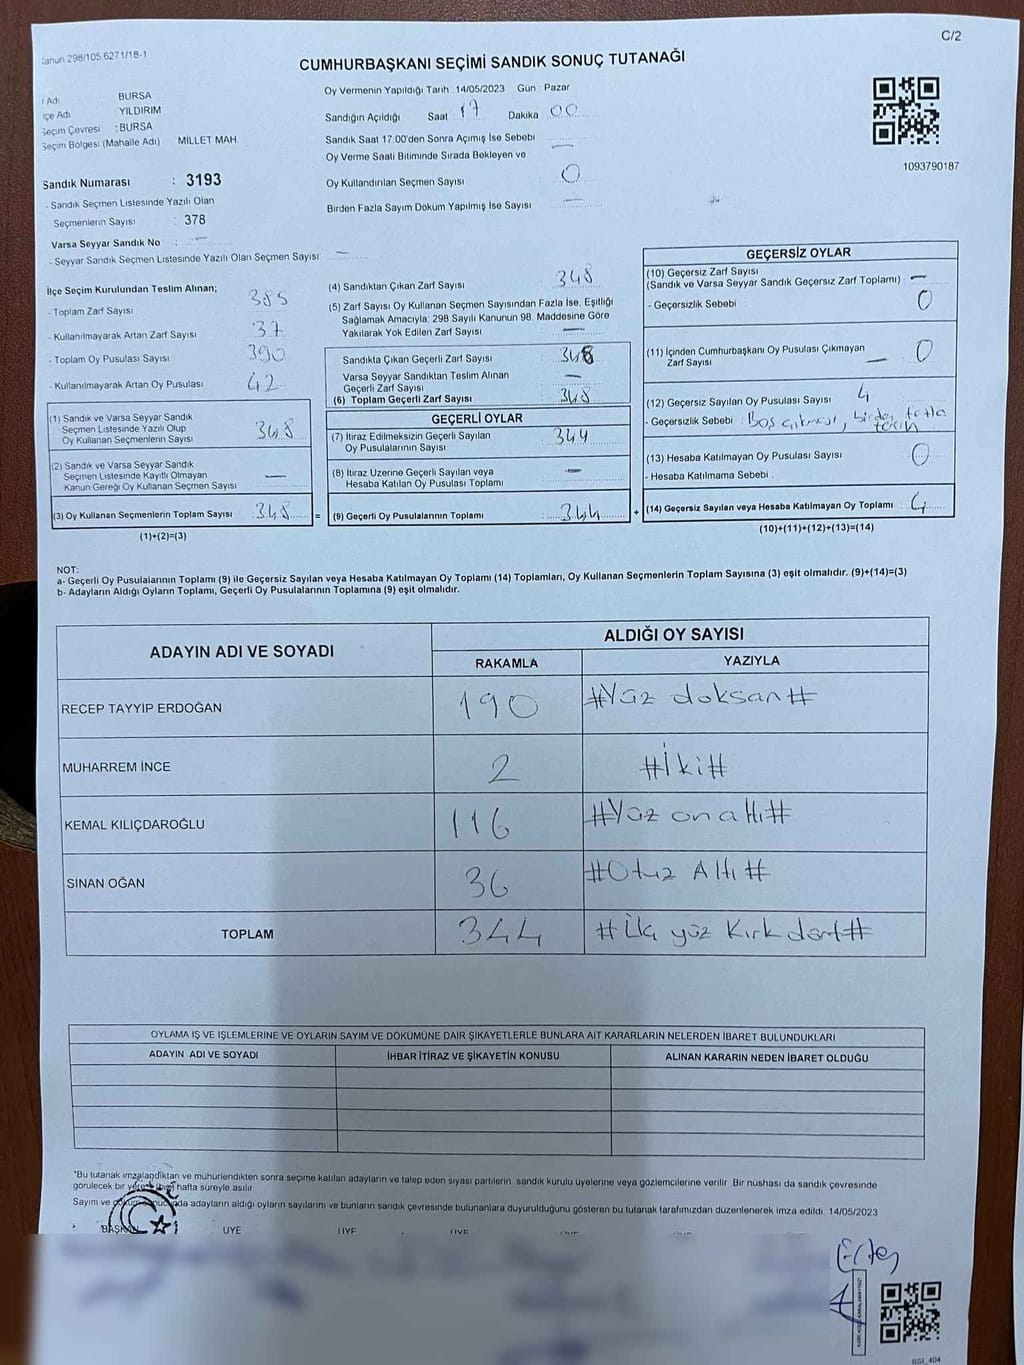 C/2
Kanun 298/105.6271/18-1
CUMHURBAŞKANI SEÇİMİ SANDIK SONUÇ TUTANAĞI
l Adı BURSA
lçe Adı YILDIRIM
Seçim Çevresi : BURSA
Seçim Bölgesi (Mahalle Adı) MİLLET MAH
Sandık Numarası : 3193
- Sandık Seçmen Listesinde Yazılı Olan
Seçmenlerin Sayısı : 378
Varsa Seyyar Sandık No : —
- Seyyar Sandık Seçmen Listesinde Yazılı Olan Seçmen Sayısı : —
Oy Vermenin Yapıldığı Tarih 14/05/2023 Gün Pazar
Sandığın Açıldığı Saat 17 Dakika 00
Sandık Saat 17.00'den Sonra Açımış İse Sebebi —
Oy Verme Saati Bitiminde Sırada Bekleyen ve
Oy Kullandırılan Seçmen Sayısı 0
Birden Fazla Sayım Döküm Yapılmış İse Sayısı —
1093790187
İlçe Seçim Kurulundan Teslim Alınan;
- Toplam Zarf Sayısı 385
- Kullanılmayarak Artan Zarf Sayısı 37
- Toplam Oy Pusulası Sayısı 390
- Kullanılmayarak Artan Oy Pusulası 42
(1) Sandık ve Varsa Seyyar Sandık
Seçmen Listesinde Yazılı Olup
Oy Kullanan Seçmenlerin Sayısı 348
(2) Sandık ve Varsa Seyyar Sandık
Seçmen Listesinde Kayıtlı Olmayan
Kanun Gereği Oy Kullanan Seçmen Sayısı —
(3) Oy Kullanan Seçmenlerin Toplam Sayısı 348 =
(1)+(2)=(3)
(4) Sandıktan Çıkan Zarf Sayısı 348
(5) Zarf Sayısı Oy Kullanan Seçmen Sayısından Fazla İse, Eşitliği
Sağlamak Amacıyla; 298 Sayılı Kanunun 98. Maddesine Göre
Yakılarak Yok Edilen Zarf Sayısı —
Sandıkta Çıkan Geçerli Zarf Sayısı 348
Varsa Seyyar Sandıktan Teslim Alınan
Geçerli Zarf Sayısı —
(6) Toplam Geçerli Zarf Sayısı 348
GEÇERLİ OYLAR
(7) İtiraz Edilmeksizin Geçerli Sayılan
Oy Pusulalarının Sayısı 344
(8) İtiraz Üzerine Geçerli Sayılan veya
Hesaba Katılan Oy Pusulası Toplamı —
(9) Geçerli Oy Pusulalarının Toplamı : 344 +
GEÇERSİZ OYLAR
(10) Geçersiz Zarf Sayısı
(Sandık ve Varsa Seyyar Sandık Geçersiz Zarf Toplamı) : —
- Geçersizlik Sebebi 0
(11) İçinden Cumhurbaşkanı Oy Pusulası Çıkmayan
Zarf Sayısı — 0
(12) Geçersiz Sayılan Oy Pusulası Sayısı 4
- Geçersizlik Sebebi : Boş çıkması, birden fazla
tercih
(13) Hesaba Katılmayan Oy Pusulası Sayısı 0
- Hesaba Katılmama Sebebi :
(14) Geçersiz Sayılan veya Hesaba Katılmayan Oy Toplamı : 4
(10)+(11)+(12)+(13)=(14)
NOT:
a- Geçerli Oy Pusulalarının Toplamı (9) ile Geçersiz Sayılan veya Hesaba Katılmayan Oy Toplamı (14) Toplamları, Oy Kullanan Seçmenlerin Toplam Sayısına (3) eşit olmalıdır. (9)+(14)=(3)
b- Adayların Aldığı Oyların Toplamı, Geçerli Oy Pusulalarının Toplamına (9) eşit olmalıdır.
ADAYIN ADI VE SOYADI ALDIĞI OY SAYISI
RAKAMLA YAZIYLA
RECEP TAYYİP ERDOĞAN 190 #Yüz doksan#
MUHARREM İNCE 2 #İki#
KEMAL KILIÇDAROĞLU 116 #Yüz on altı#
SİNAN OĞAN 36 #Otuz Altı#
TOPLAM 344 # Üç yüz kırk dört#
OYLAMA İŞ VE İŞLEMLERİNE VE OYLARIN SAYIM VE DÖKÜMÜNE DAİR ŞİKAYETLERLE BUNLARA AİT KARARLARIN NELERDEN İBARET BULUNDUKLARI
ADAYIN ADI VE SOYADI İHBAR İTİRAZ VE ŞİKAYETİN KONUSU ALINAN KARARIN NEDEN İBARET OLDUĞU
*Bu tutanak imzalandıktan ve mühürlendikten sonra seçime katılan adayların ve talep eden siyasi partilerin sandık kurulu üyelerine veya gözlemcilerine verilir. Bir nüshası da sandık çevresinde
görülecek bir yere bir hafta süreyle asılır.
Sayım ve döküm sonucunda adayların aldığı oyların sayılarını ve bunların sandık çevresinde bulunanlara duyurulduğunu gösteren bu tutanak tarafımızdan düzenlenerek imza edildi. 14/05/2023
BAŞKAN ÜYE ÜYE ÜYE ÜYE ÜYE
BSI_404